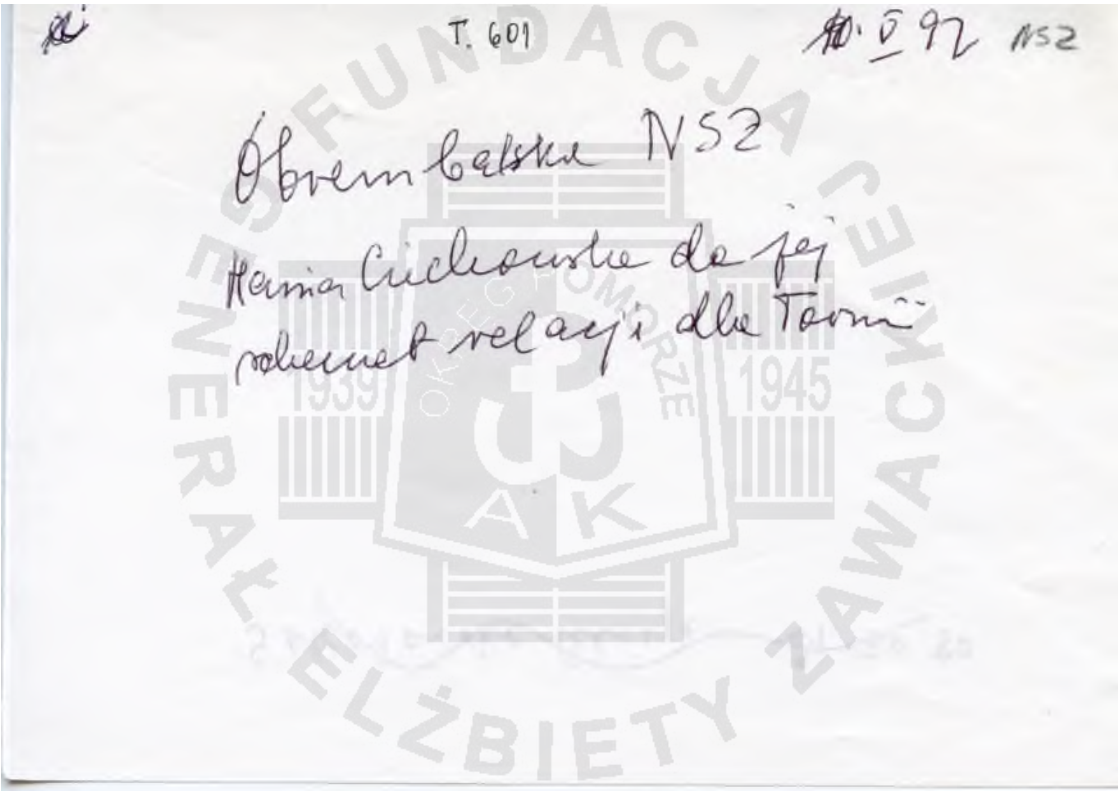 T. 601
10. V 92 NSZ
Obrembalska NSZ
Hania Cichowska da jej
schemat relacji dla Toruń
FUNDACJA GENERAŁ ELŻBIETY ZAWACKIEJ
OKRĘG POMORZE
1939 1945
AK